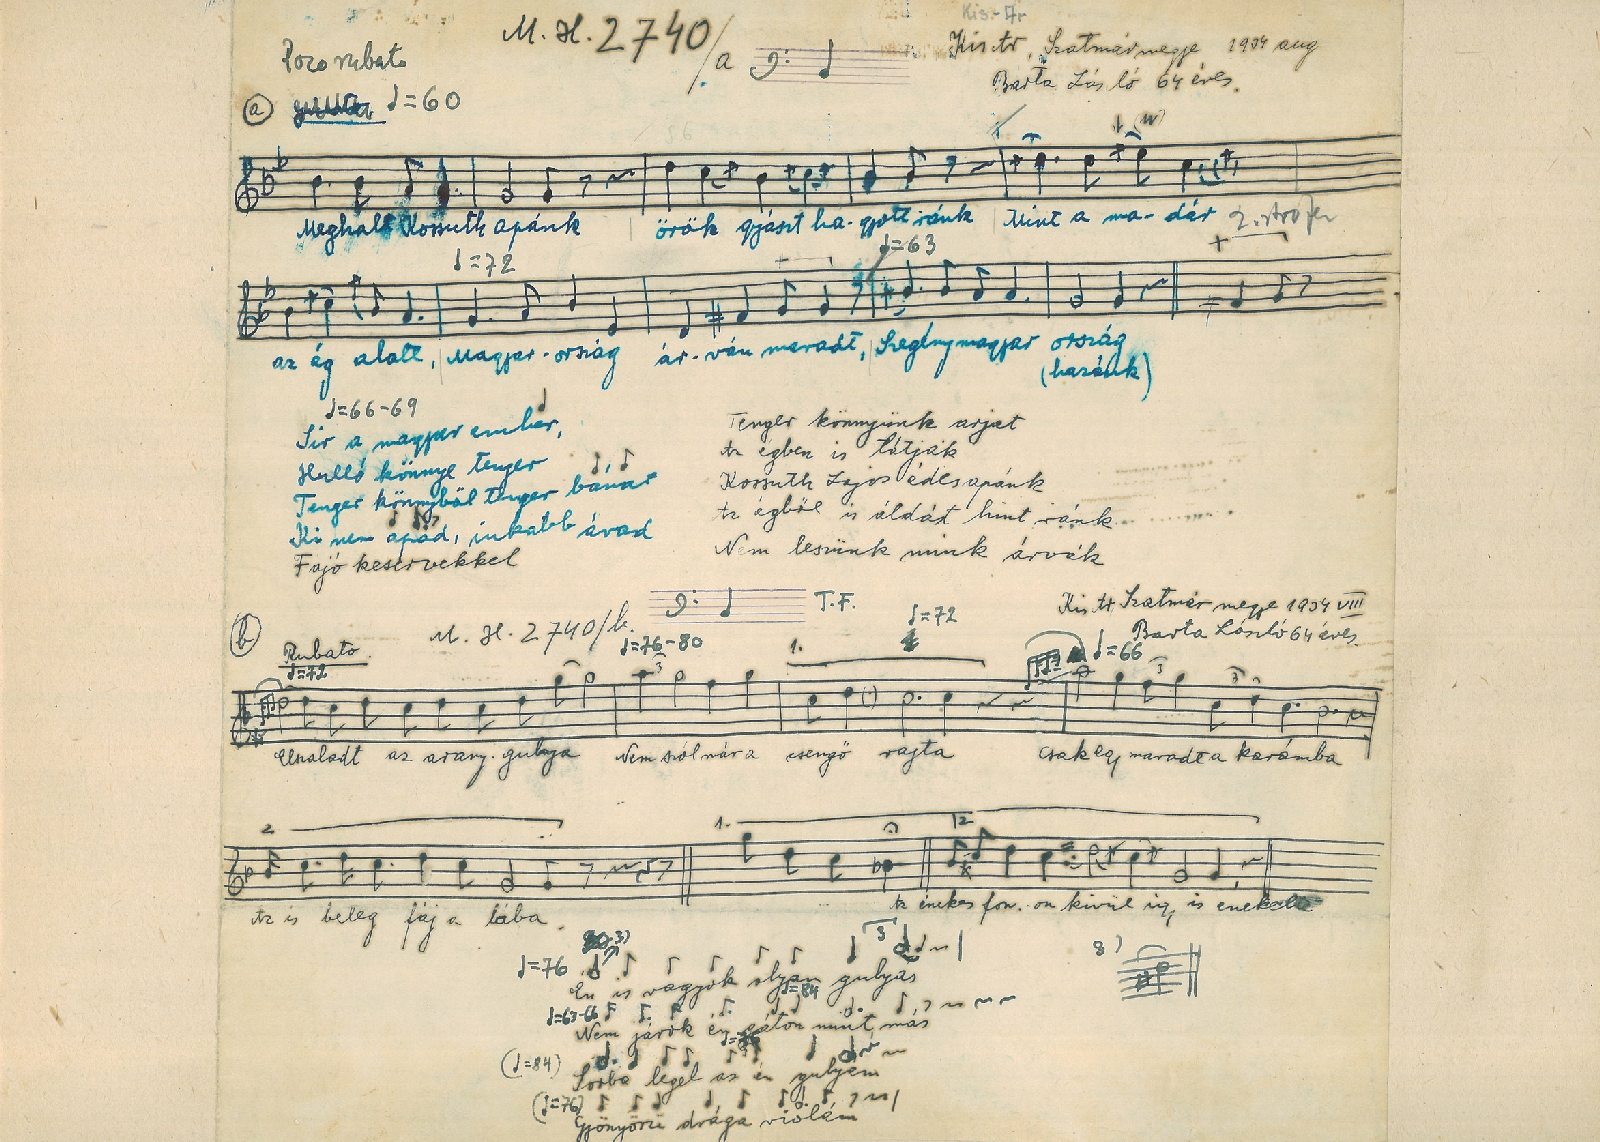 Kis-Ar
M. H. 2740/a
Kis Ar, Szatmár megye 1934 aug
Barta László 64 éves.
Poco rubato
a ♩=60
Meghalt Kossuth apánk örök gyászt ha-gyott ránk Mint a ma-dár 2. strofa
♩=72 ♩=63
az ég alatt, Magyar-ország ár-ván maradt, Szegény magyar ország
(hazánk)
♩=66-69
Sir a magyar ember,
Hulló könnye tenger
Tenger könnyből tenger bánat
Ki nem apad, inkább árad
Fájó keservekkel
Tenger könnyünk arját
Az égben is látják
Kossuth Lajos édes apánk
Az égből is áldást hint ránk
Nem leszünk mink árvák
b M. H. 2740/b. T.F.
Kis Ar Szatmár megye 1934 VIII
Barta László 64 éves
Rubato
♩=72 ♩=76-80 3 1. ♩=72 ♩=66 3 3
Elszaladt az arany-gulya Nem szól már a csengő rajta Csak egy maradt a karámba
2. 1. 2.
Az is beteg fáj a lába.
Az énekes fon.-on kivül igy is énekelte
♩=76 3) 3
Én is vagyok olyan gulyás
3)
♩=63-66 ♩=84
Nem járok én úton mint más
(♩=84)
Sorba legel az én gulyám
(♩=76)
Gyönyörü drága violám